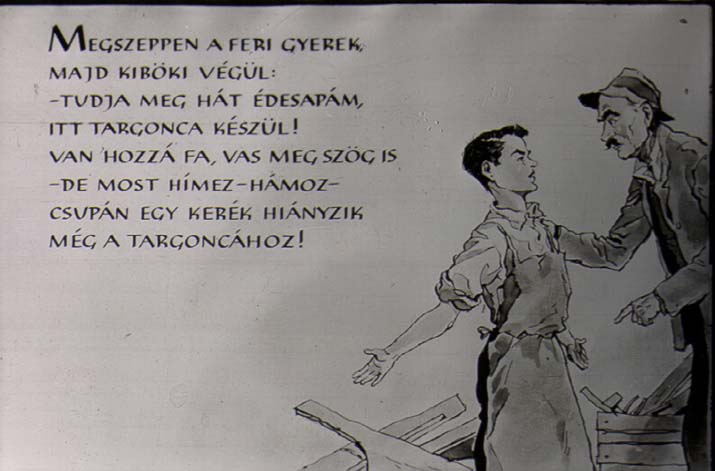 MEGSZEPPEN A FERI GYEREK,
MAJD KIBÖKI VÉGÜL:
-TUDJA MEG HÁT ÉDESAPÁM,
ITT TARGONCA KÉSZÜL!
VAN HOZZÁ FA, VAS MEG SZÖG IS
-DE MOST HÍMEZ-HÁMOZ-
CSUPÁN EGY KERÉK HIÁNYZIK
MÉG A TARGONCÁHOZ!